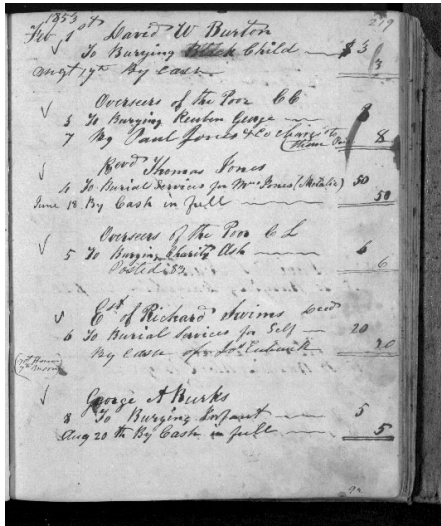 1853
Feb 1st David W Burton 219
To Burying Black Child $3
Augt 19th By Cash 3
Overseers of the Poor C C
3 To Burying Reuben George 8
7 By Paul Jones & Co 8
Revd Thomas Jones
4 To Burial Services for Mrs Jones (Metalic) 50
June 18 By Cash in full 50
Overseers of the Poor C L
5 To Burying Charity Ash 6
Posted 83 6
Est of Richard Decd
6 To Burial Services for Self 20
By Cash 20
George A Burks
8 To Burying Infant 5
Aug 20th By Cash in full 5